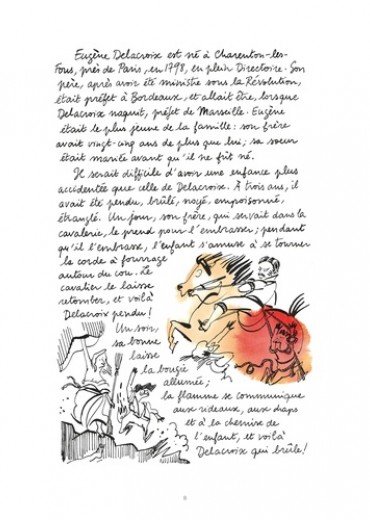 Eugène Delacroix est né à Charenton-les-
Fous, près de Paris, en 1798, en plein Directoire. Son
père, après avoir été ministre sous la Révolution,
était préfet à Bordeaux, et allait être, lorsque
Delacroix naquit, préfet de Marseille. Eugène
était le plus jeune de la famille : son frère
avait vingt-cinq ans de plus que lui ; sa sœur
était mariée avant qu'il ne fût né.
Il serait difficile d'avoir une enfance plus
accidentée que celle de Delacroix. À trois ans, il
avait été pendu, brûlé, noyé, empoisonné,
étranglé. Un jour, son frère, qui servait dans la
cavalerie, le prend pour l'embrasser ; pendant
qu'il l'embrasse, l'enfant s'amuse à se tourner
la corde à fourrage
autour du cou. Le
cavalier le laisse
retomber, et voilà
Delacroix pendu !
Un soir,
sa bonne
laisse
la bougie
allumée ;
la flamme se communique
aux rideaux, aux draps
et à la chemise de
l'enfant, et voilà
Delacroix qui brûle !